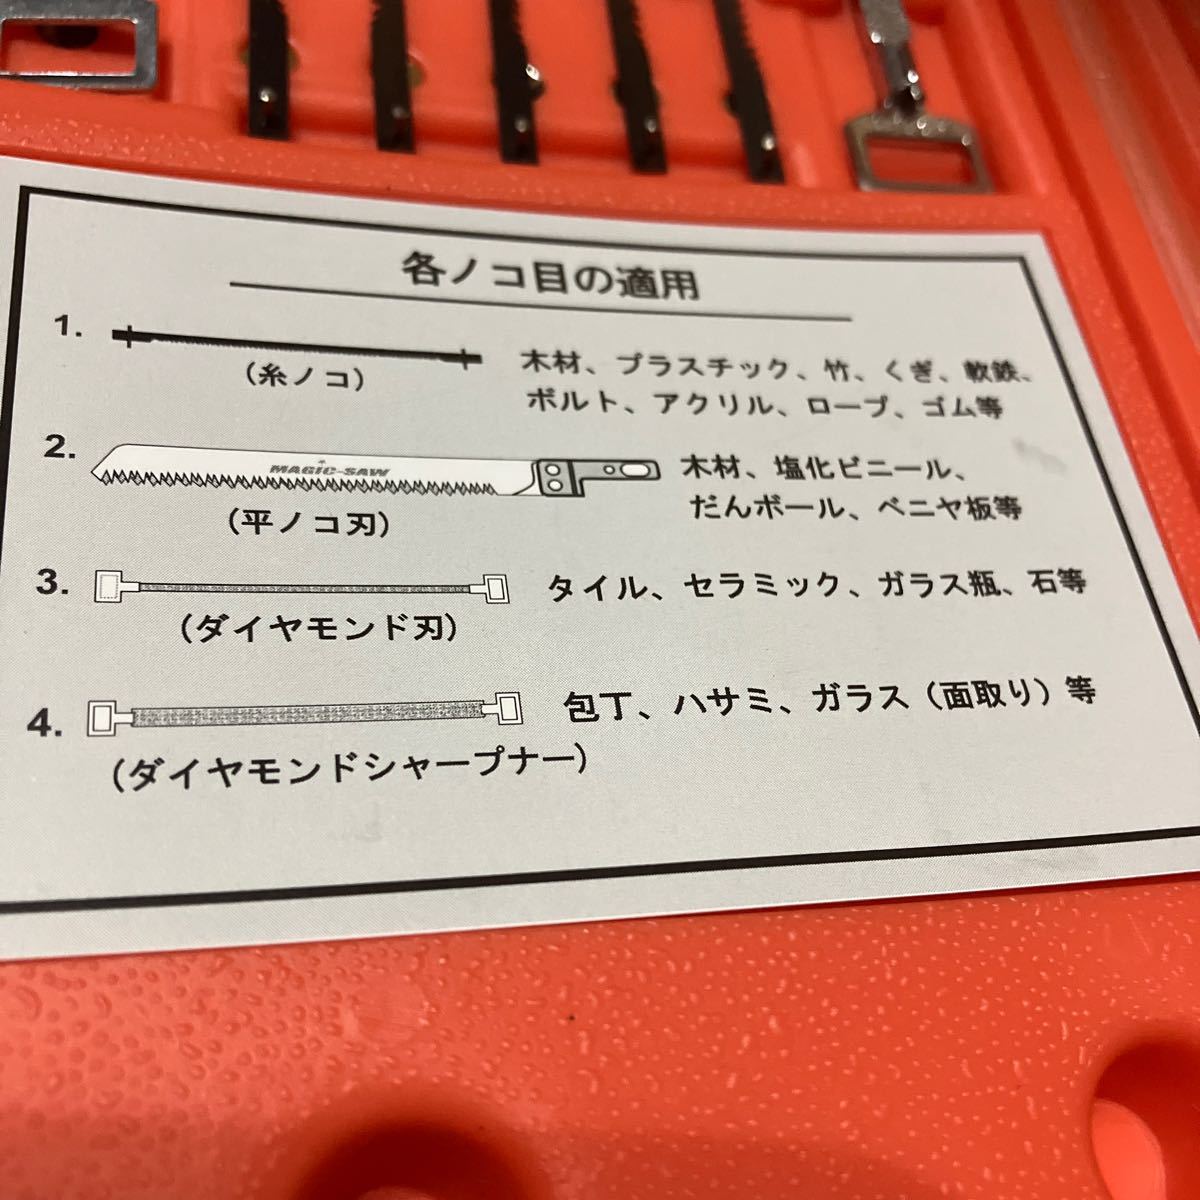 各ノコ目の適用
1.
(糸ノコ)
木材、プラスチック、竹、くぎ、軟鉄、
ボルト、アクリル、ロープ、ゴム等
2.
MAGIC-SAW
(平ノコ刃)
木材、塩化ビニール、
だんボール、ベニヤ板等
3.
(ダイヤモンド刃)
タイル、セラミック、ガラス瓶、石等
4.
(ダイヤモンドシャープナー)
包丁、ハサミ、ガラス(面取り)等